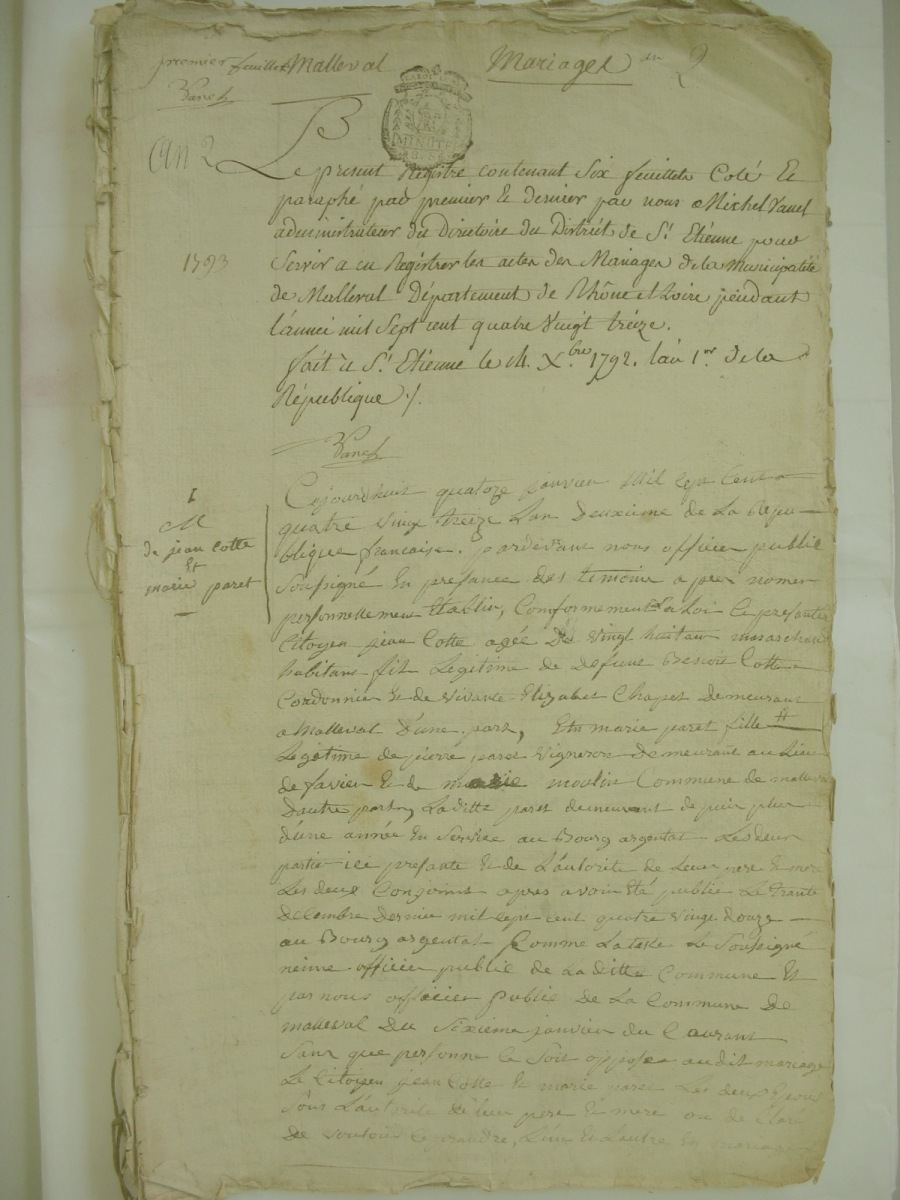 premier feuillet Malleval Mariages an 2
Vanel
MINUTE
an 2
Le present Registre contenant Six feuillets Coté Et
paraphé par premier Et dernier par nous Michel Vanel
administrateur du Directoire du District de St. Etienne pour
1793
Servir a en Registrer les actes des Mariages de la Municipalité
de Malleval Département de Rhône et Loire pendant
l'année mil Sept cent quatre Vingt treize.
fait à St. Etienne le 14. Xbre 1792. l'an 1er de la
République /.
Vanel
Cejourdhuit quatorze janvier Mil sept Cent
quatre vingt treize Lan Deuxieme de La Repu-
blique francaise. pardevant nous officier public
Soussigné En présance des temoins apres nomer
personnellement Etablis, Conformement a La Loi Ce presante
1
M
de jean Cotte
Et
marie paret
Citoyen jean Cotte agée De vingt huitans
habitans fils Legitime de defunt Cotte
Cordonnier Et de vivante Elizabet Chapet Demeurant
a Malleval D'une part, Et marie paret fille #
Legitime de pierre paret vigneron Demeurant au Lieu
de favier Et de moulin Commune de malleval
Dautre part, Laditte paret demeurant depuis plus
d'une année En Service au Bourg argental Les deux
partie ice presante Et de L'autorite de Leur pere Et mere
Les deux Conjoins apres avoir Eté publié Le trante
decembre dernier mil sept cent quatre vingt douze
au Bourg argental Comme Lateste Le Soussigné
officier public de Laditte Commune Et
par nous officier public De La Commune De
malleval Du Sixieme janvier du Courant
Sans que personne ce Soit opposer audit mariage
Le Citoyen jean Cotte Et marie paret Les deux
Sous L'autorite de leur pere Et mere ont declaré
De vouloir ce prandre, L'un Et Lautre En mariage